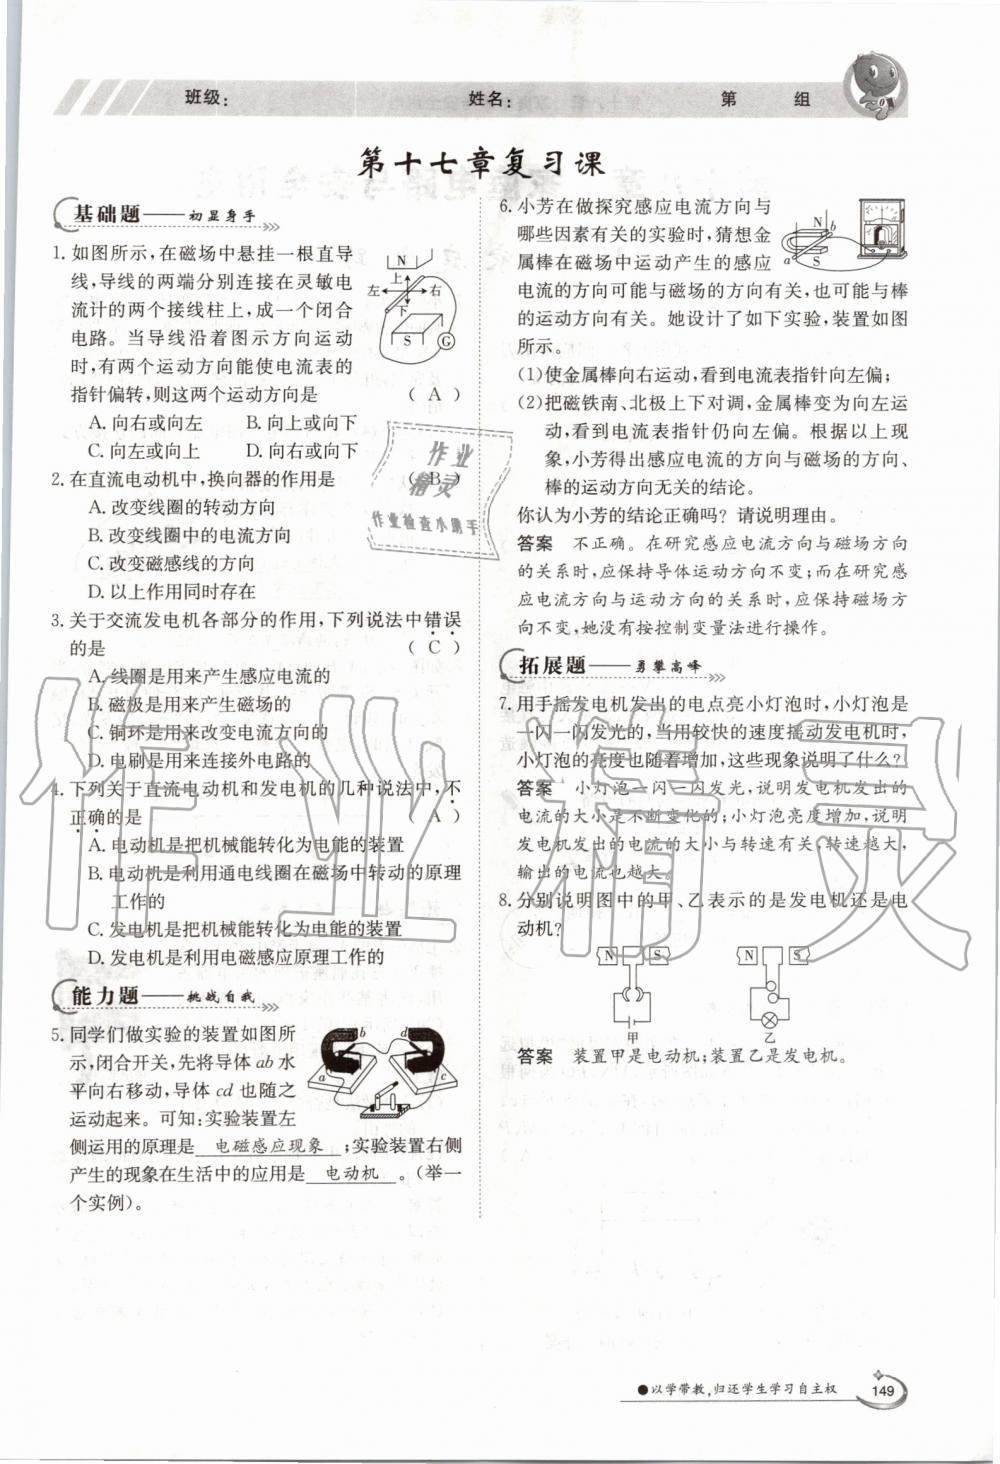 班级：　姓名：　第　组
第十七章复习课
基础题——初显身手
1. 如图所示,在磁场中悬挂一根直导
线,导线的两端分别连接在灵敏电
流计的两个接线柱上,成一个闭合
电路。当导线沿着图示方向运动
时,有两个运动方向能使电流表的
指针偏转,则这两个运动方向是 ( A )
N
上
左 右
下
S G
A. 向右或向左 B. 向上或向下
C. 向左或向上 D. 向右或向下
2. 在直流电动机中,换向器的作用是 ( B )
A. 改变线圈的转动方向
B. 改变线圈中的电流方向
C. 改变磁感线的方向
D. 以上作用同时存在
3. 关于交流发电机各部分的作用,下列说法中错误
的是 ( C )
A. 线圈是用来产生感应电流的
B. 磁极是用来产生磁场的
C. 铜环是用来改变电流方向的
D. 电刷是用来连接外电路的
4. 下列关于直流电动机和发电机的几种说法中,不
正确的是 ( A )
A. 电动机是把机械能转化为电能的装置
B. 电动机是利用通电线圈在磁场中转动的原理
工作的
C. 发电机是把机械能转化为电能的装置
D. 发电机是利用电磁感应原理工作的
能力题——挑战自我
5. 同学们做实验的装置如图所
示,闭合开关,先将导体 ab 水
平向右移动,导体 cd 也随之
运动起来。可知:实验装置左
侧运用的原理是 电磁感应现象 ;实验装置右侧
产生的现象在生活中的应用是 电动机 。(举一
个实例)。
b d
a c
6. 小芳在做探究感应电流方向与
哪些因素有关的实验时,猜想金
属棒在磁场中运动产生的感应
电流的方向可能与磁场的方向有关,也可能与棒
的运动方向有关。她设计了如下实验,装置如图
所示。
N
b
a S
(1)使金属棒向右运动,看到电流表指针向左偏;
(2)把磁铁南、北极上下对调,金属棒变为向左运
动,看到电流表指针仍向左偏。根据以上现
象,小芳得出感应电流的方向与磁场的方向、
棒的运动方向无关的结论。
你认为小芳的结论正确吗?请说明理由。
答案 不正确。在研究感应电流方向与磁场方向
的关系时,应保持导体运动方向不变;而在研究感
应电流方向与运动方向的关系时,应保持磁场方
向不变,她没有按控制变量法进行操作。
拓展题——勇攀高峰
7. 用手摇发电机发出的电点亮小灯泡时,小灯泡是
一闪一闪发光的,当用较快的速度摇动发电机时,
小灯泡的亮度也随着增加,这些现象说明了什么?
答案 小灯泡一闪一闪发光,说明发电机发出的
电流的大小是不断变化的;小灯泡亮度增加,说明
发电机发出的电流的大小与转速有关,转速越大,
输出的电流也越大。
8. 分别说明图中的甲、乙表示的是发电机还是电
动机?
N S N S
甲 乙
答案 装置甲是电动机;装置乙是发电机。
作业
精灵
作业检查小助手
作业精灵
●以学带教,归还学生学习自主权
149